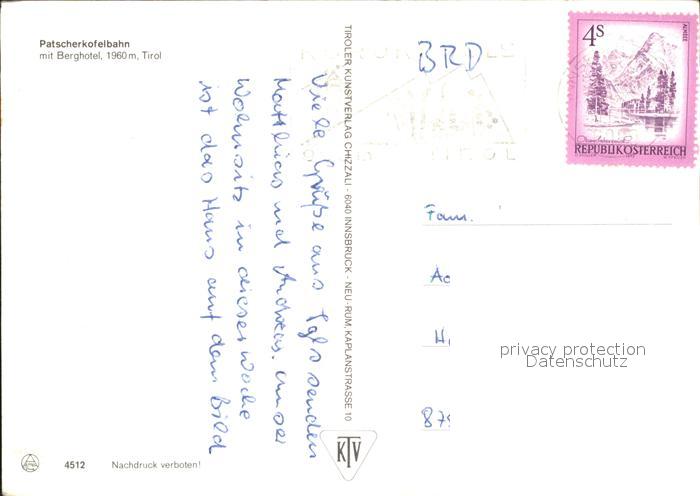 Patscherkofelbahn
mit Berghotel, 1960 m, Tirol
Viele Grüße aus Igls senden
Matthias und Andreas. Unser
Wohnsitz in dieser Woche
ist das Haus auf dem Bild
TIROLER KUNSTVERLAG CHIZZALI · 6040 INNSBRUCK · NEU-RUM, KAPLANSTRASSE 10
KTV
4512 Nachdruck verboten!
BRD
4S
ALMSEE
REPUBLIK ÖSTERREICH
TIROL
Fam.
privacy protection
Datenschutz